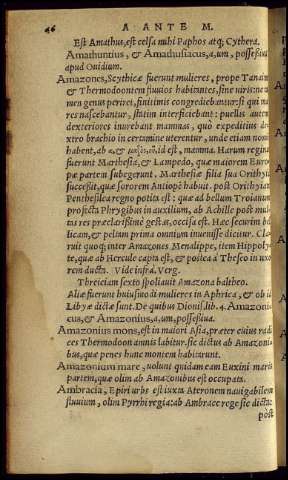 46 A ANTE M.
Est Amathus, est celsa mihi Paphos atq; Cythera.
Amathuntius, & Amathusiacus, a, um, possessiva
apud Ouidium.
Amazones, Scythicæ fuerunt mulieres, prope Tanaim
& Thermodoontem fluuios habitantes, sine uiris: ne u
num genus periret, finitimis congrediebantur: si qui ma
res nascebantur, statim interficiebant: puellis autem
dexteriores inurebant mammas, quò expeditius de
xtro brachio in certamine uterentur, unde etiam nomen
habent, ab id est, mamma. Harum reginæ
fuerunt Marthesia, & Lampedo, quæ maiorem Euro
pæ partem subegerunt. Marthesiæ filia sua Orithyia
successit, quæ sororem Antiopē habuit. post Orithyiam
Penthesilea regno potita est: quæ ad bellum Troianum
profecta Phrygibus in auxilium, ab Achille post mul
tas res præclarissimè gestas, occisa est. Hæc securim bel
licam, & peltam prima omnium inuenisse dicitur. Cla
ruit quoq; inter Amazones Menalippe, item Hippoly
te, quæ ab Hercule capta est, & postea à Theseo in uxo
rem ducta. Vide infrà. Verg.
Threiciam sexto spoliauit Amazona balteo.
Aliæ fuerunt huiusmodi mulieres in Aphrica, & ob id
Libyæ dictæ sunt. De quibus Dionis. lib. 4. Amazoni
cus, & Amazonius, a, um, possessiua.
Amazonius mons, est in maiori Asia, præter cuius radi
ces Thermodoon amnis labitur. sic dictus ab Amazoni
bus, quæ penes hunc montem habitarunt.
Amazonium mare, uolunt quidam eam Euxini maris
partem, quæ olim ab Amazonibus est occupata.
Ambracia, Epiri urbs est iuxta Ateronem nauigabilem
fluuium, olim Pyrrhi regia: ab Ambrace rege sic dicta:
pòst